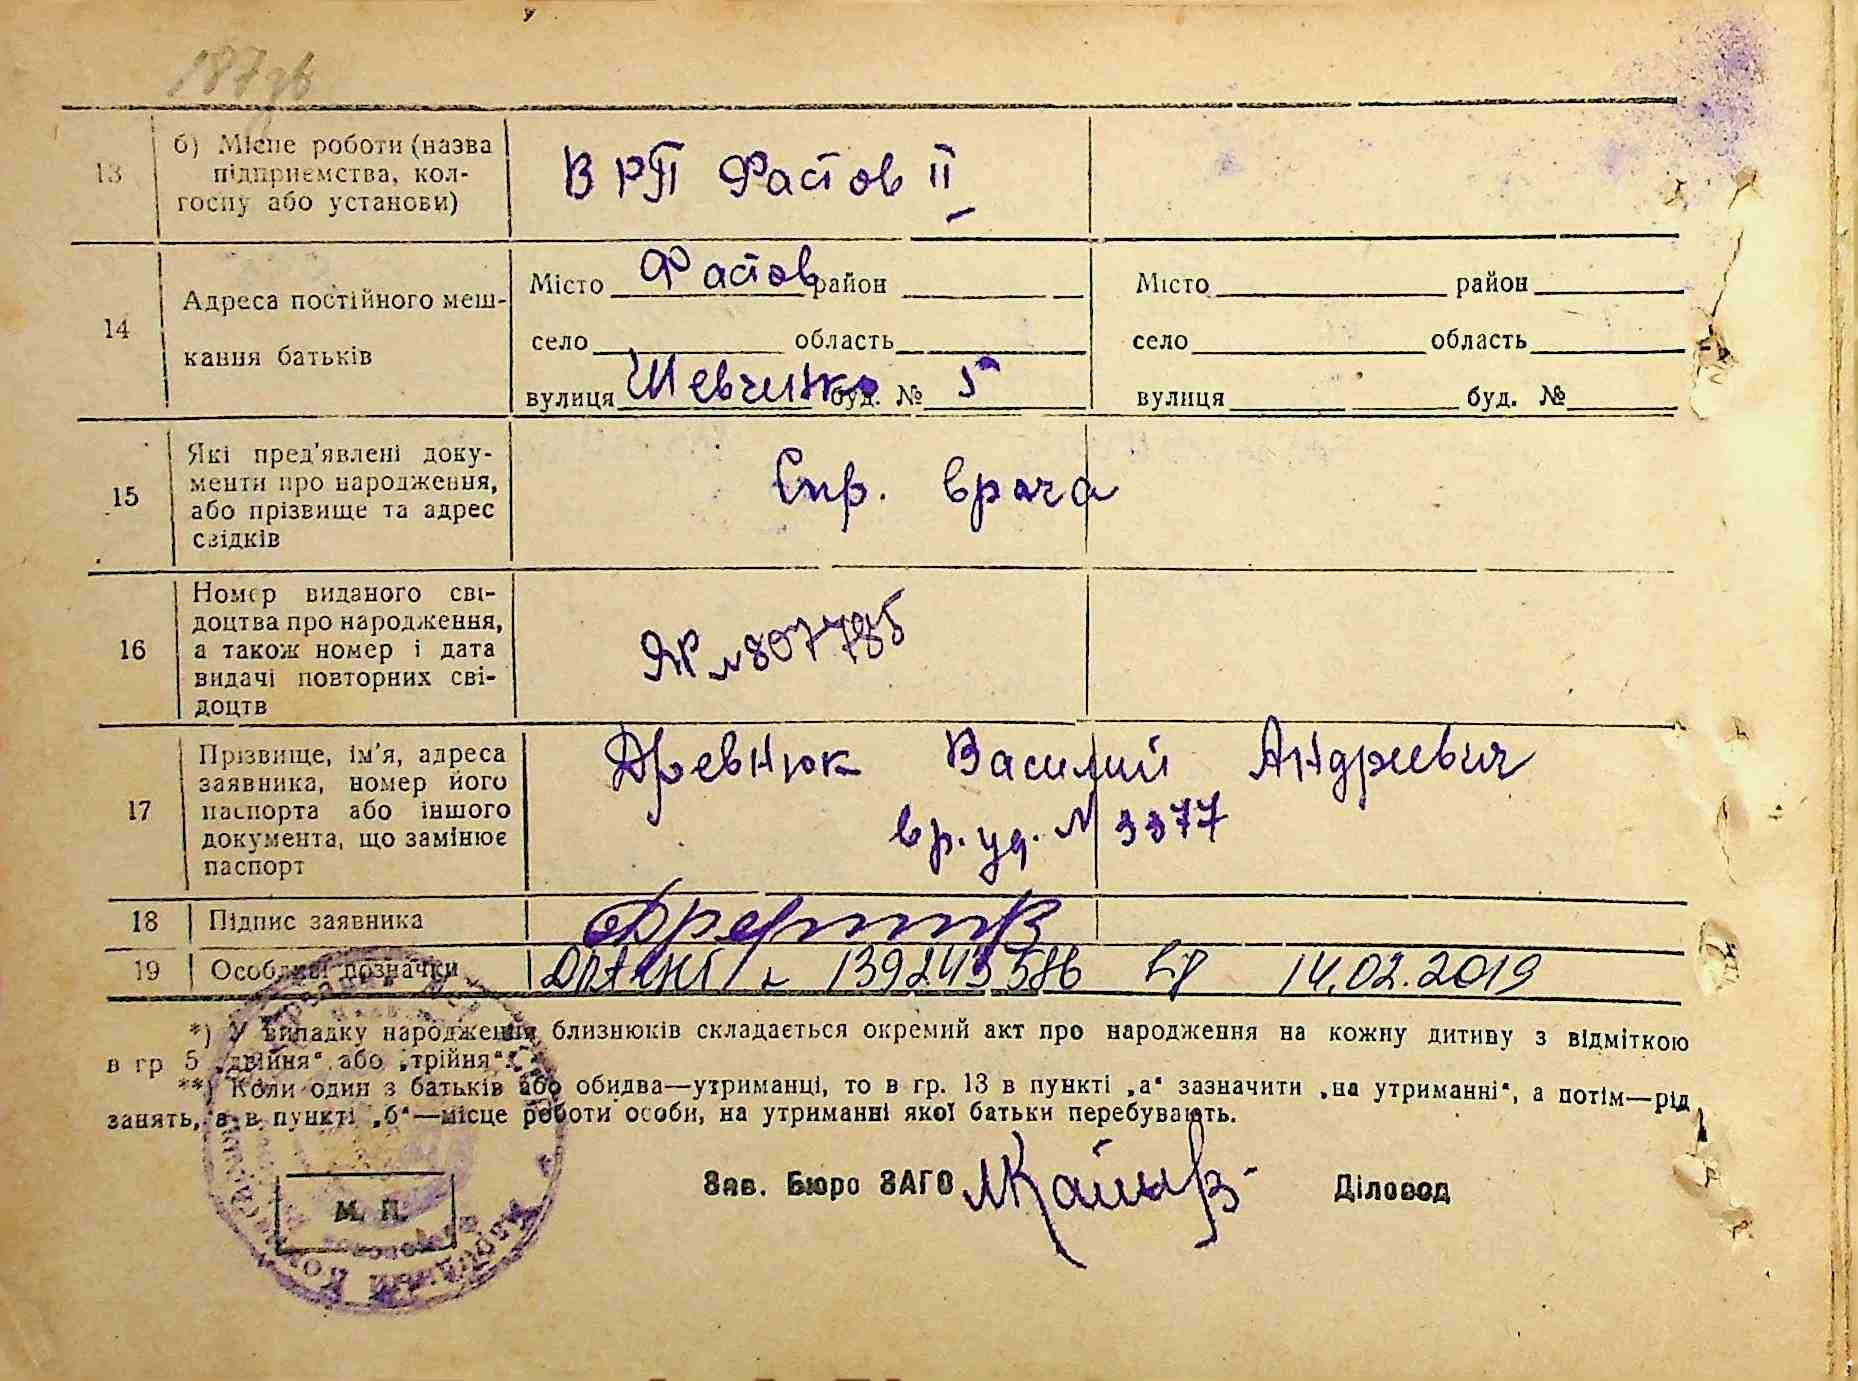 187зв
13
б) Місце роботи (назва
підприємства, кол-
госпу або установи)
ВРП Фастов II
14
Адреса постійного меш-
кання батьків
Місто Фастов район
село область
вулиця Шевченко буд. № 5
Місто район
село область
вулиця буд. №
15
Які пред'явлені доку-
менти про народження,
або прізвище та адрес
свідків
Спр. врача
16
Номер виданого сві-
доцтва про народження,
а також номер і дата
видачі повторних сві-
доцтв
ЯР №807785
17
Прізвище, ім'я, адреса
заявника, номер його
паспорта або іншого
документа, що замінює
паспорт
Древнюк Василий Андреевич
вр. уд. № 3377
18
Підпис заявника
19
Особливі позначки
139243586 14.02.2019
*) У випадку народження близнюків складається окремий акт про народження на кожну дитину з відміткою
в гр 5 „двійня“ або „трійня“.
**) Коли один з батьків або обидва—утриманці, то в гр. 13 в пункті „а“ зазначити „на утриманні“, а потім—рід
занять, а в пункті „б“—місце роботи особи, на утриманні якої батьки перебувають.
Зав. Бюро ЗАГС
Діловод
М. П.